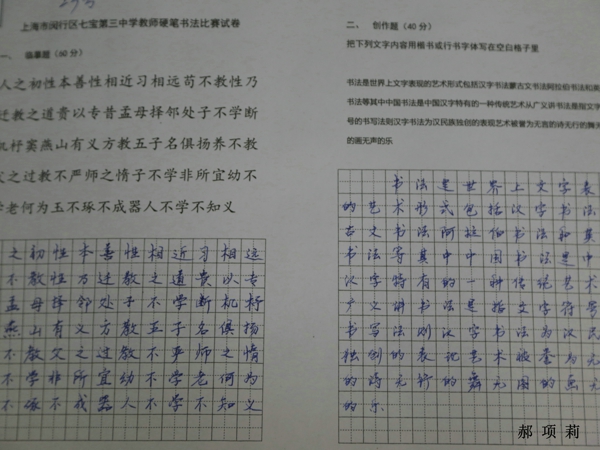 上海市闵行区七宝第三中学教师硬笔书法比赛试卷
一、 临摹题（60分）
人之初性本善性相近习相远苟不教性乃
迁教之道贵以专昔孟母择邻处子不学断
机杼窦燕山有义方教五子名俱扬养不教
父之过教不严师之惰子不学非所宜幼不
学老何为玉不琢不成器人不学不知义
之初性本善性相近习相远
不教性乃迁教之道贵以专
孟母择邻处子不学断机杼
燕山有义方教五子名俱扬
不教父之过教不严师之惰
不学非所宜幼不学老何为
不琢不成器人不学不知义
二、 创作题（40分）
把下列文字内容用楷书或行书字体写在空白格子里
书法是世界上文字表现的艺术形式包括汉字书法蒙古文书法阿拉伯书法和英
书法等其中中国书法是中国汉字特有的一种传统艺术从广义讲书法是指文字
号的书写法则汉字书法为汉民族独创的表现艺术被誉为无言的诗无行的舞无
的画无声的乐
书法是世界上文字表
的艺术形式包括汉字书法
古文书法阿拉伯书法和英
书法等其中中国书法是中
汉字特有的一种传统艺术
广义讲书法是指文字符号
书写法则汉字书法为汉民
独创的表现艺术被誉为无
的诗无行的舞无图的画无
的乐
郝项莉